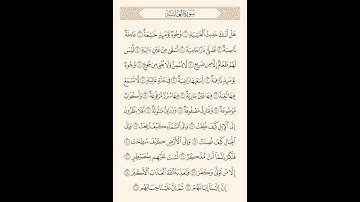 سورة الغاشية
هَلْ أَتَىٰكَ حَدِيثُ ٱلْغَٰشِيَةِ ١ وُجُوهٌ يَوْمَئِذٍ خَٰشِعَةٌ ٢ عَامِلَةٌ
نَّاصِبَةٌ ٣ تَصْلَىٰ نَارًا حَامِيَةً ٤ تُسْقَىٰ مِنْ عَيْنٍ ءَانِيَةٍ ٥ لَّيْسَ
لَهُمْ طَعَامٌ إِلَّا مِن ضَرِيعٍ ٦ لَّا يُسْمِنُ وَلَا يُغْنِى مِن جُوعٍ ٧ وُجُوهٌ
يَوْمَئِذٍ نَّاعِمَةٌ ٨ لِّسَعْيِهَا رَاضِيَةٌ ٩ فِى جَنَّةٍ عَالِيَةٍ ١٠ لَّا تَسْمَعُ
فِيهَا لَٰغِيَةً ١١ فِيهَا عَيْنٌ جَارِيَةٌ ١٢ فِيهَا سُرُرٌ مَّرْفُوعَةٌ ١٣ وَأَكْوَابٌ
مَّوْضُوعَةٌ ١٤ وَنَمَارِقُ مَصْفُوفَةٌ ١٥ وَزَرَابِىُّ مَبْثُوثَةٌ ١٦ أَفَلَا يَنظُرُونَ
إِلَى ٱلْإِبِلِ كَيْفَ خُلِقَتْ ١٧ وَإِلَى ٱلسَّمَآءِ كَيْفَ رُفِعَتْ ١٨ وَإِلَى
ٱلْجِبَالِ كَيْفَ نُصِبَتْ ١٩ وَإِلَى ٱلْأَرْضِ كَيْفَ سُطِحَتْ ٢٠
فَذَكِّرْ إِنَّمَآ أَنتَ مُذَكِّرٌ ٢١ لَّسْتَ عَلَيْهِم بِمُصَيْطِرٍ ٢٢
إِلَّا مَن تَوَلَّىٰ وَكَفَرَ ٢٣ فَيُعَذِّبُهُ ٱللَّهُ ٱلْعَذَابَ ٱلْأَكْبَرَ ٢٤
إِنَّ إِلَيْنَآ إِيَابَهُمْ ٢٥ ثُمَّ إِنَّ عَلَيْنَا حِسَابَهُم ٢٦